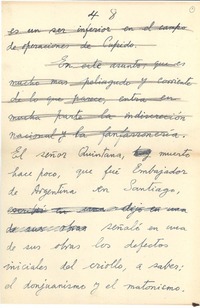 4 8
es un ser inferior en el campo
de operaciones de Cupido.
En este asunto, que es
mucho mas peliagudo y corriente
de lo que parece, entra en
mucha parte la indiscreción
nacional y la fanfarronería.
El señor Quintana, hoy muerto
hace poco, que fué Embajador
de Argentina en Santiago,
escribió en una dijo en una
de sus obras señaló en una
de sus obras los defectos
iniciales del criollo, a saber;
el donjuanismo y el matonismo.